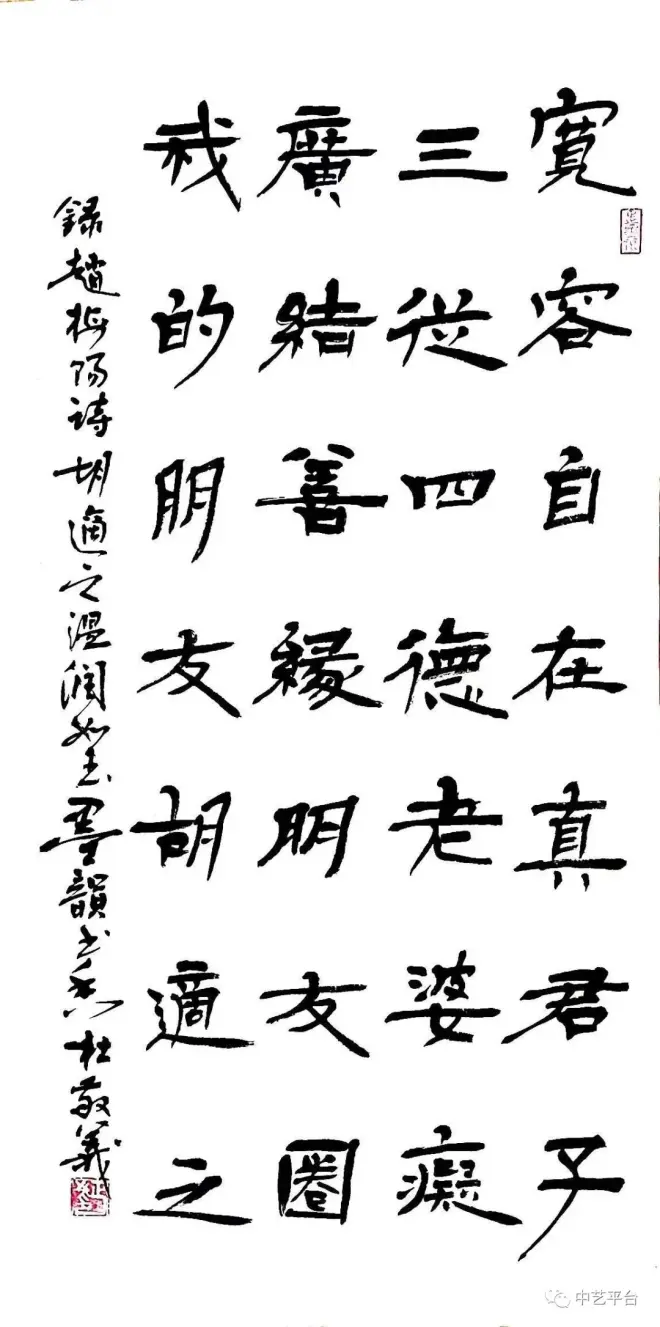 寬容自在真君子
三從四德老婆癡
廣結善緣朋友圈
我的朋友胡適之
錄趙梅陽詩胡適之溫潤如玉墨韻書香杜敬義
中艺平台